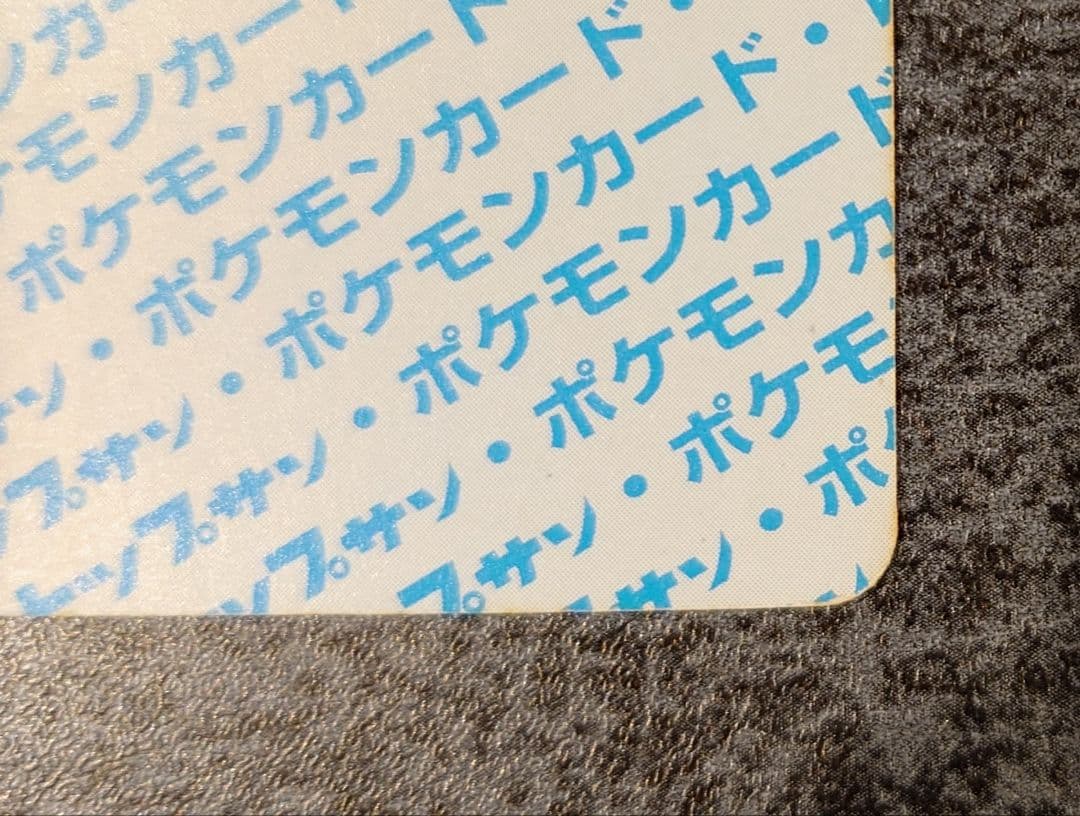 ンカー
ケモンカー
ポケモンカード
ン・ポケモンカード・
プサン・ポケモンカード・
トップサン・ポケモンカード
ップサン・ポケモンカ
プサン・ポケモ
サン・ポケ